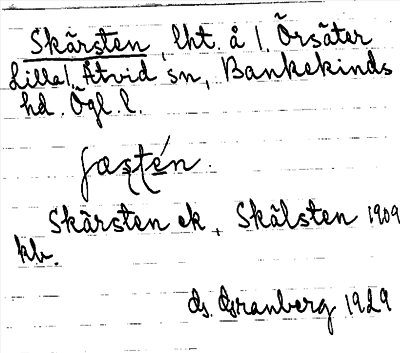 Skärsten, lht. å l. Örsäter
Lilla l. Åtvid sn, Bankekinds
hd. Ögl. l.
Skärsten ek, Skälsten 1909
kb.
Granberg 1929